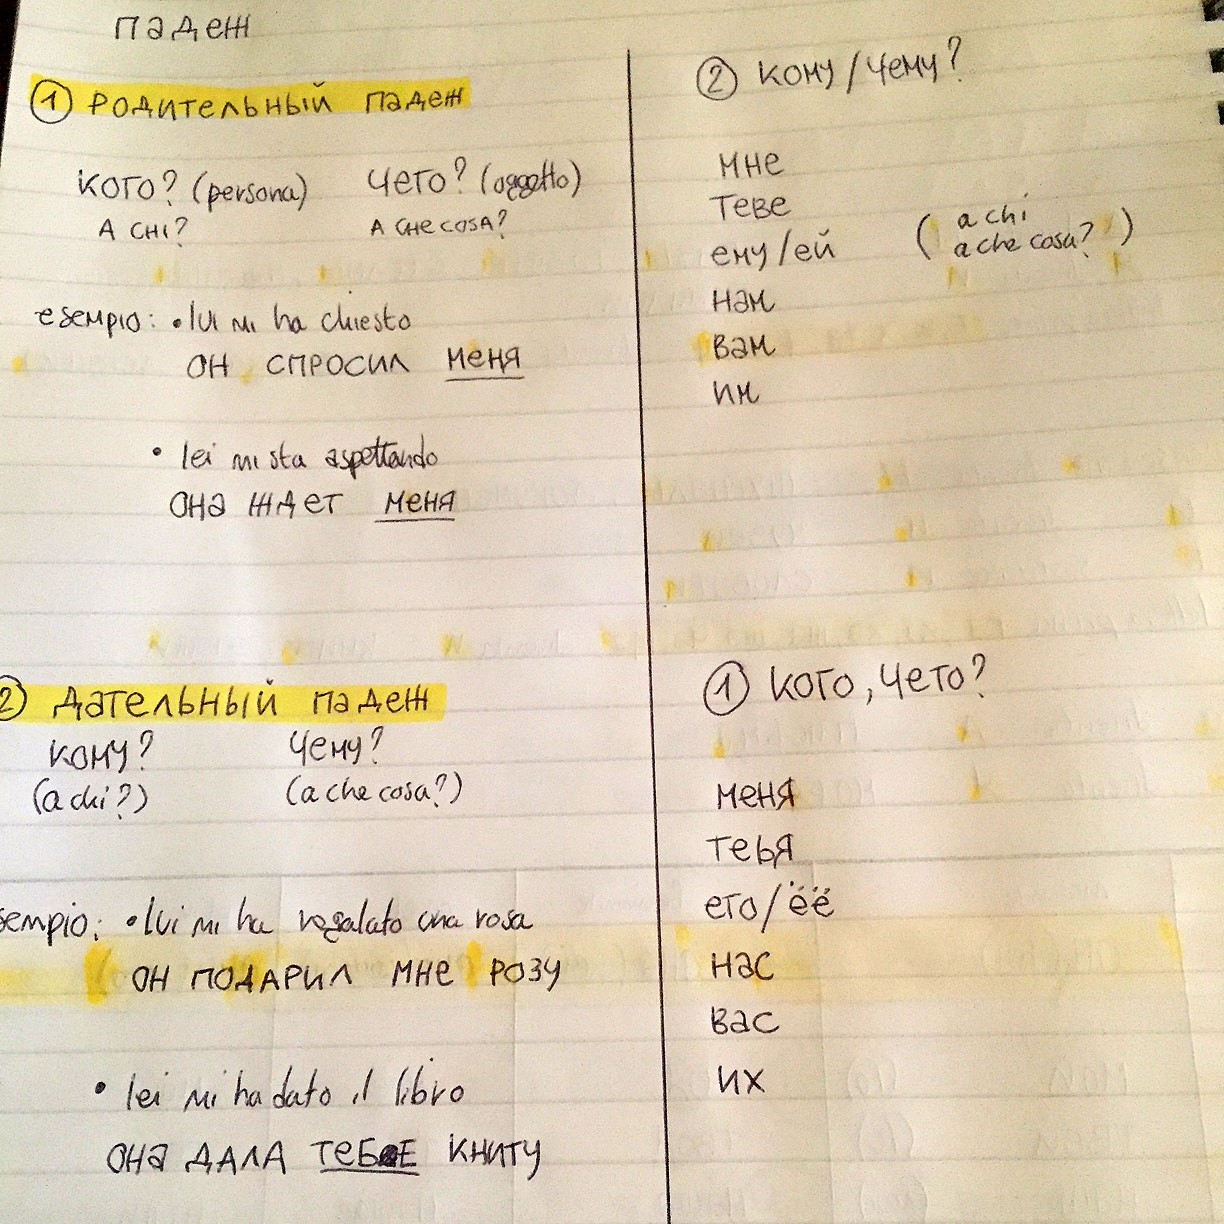 падеж
① родительный падеж
кого? (persona) чего? (oggetto)
A CHI? A CHE COSA?
esempio: • lui mi ha chiesto
он спросил меня
• lei mi sta aspettando
она ждет меня
② дательный падеж
кому? чему?
(a chi?) (a che cosa?)
sempio: • lui mi ha regalato una rosa
он подарил мне розу
• lei mi ha dato il libro
она дала тебе книгу
② кому / чему?
мне
теве
ему/ей
( a chi
a che cosa? )
нам
вам
им
① кого, чего?
меня
тебя
его/ёё
нас
вас
их